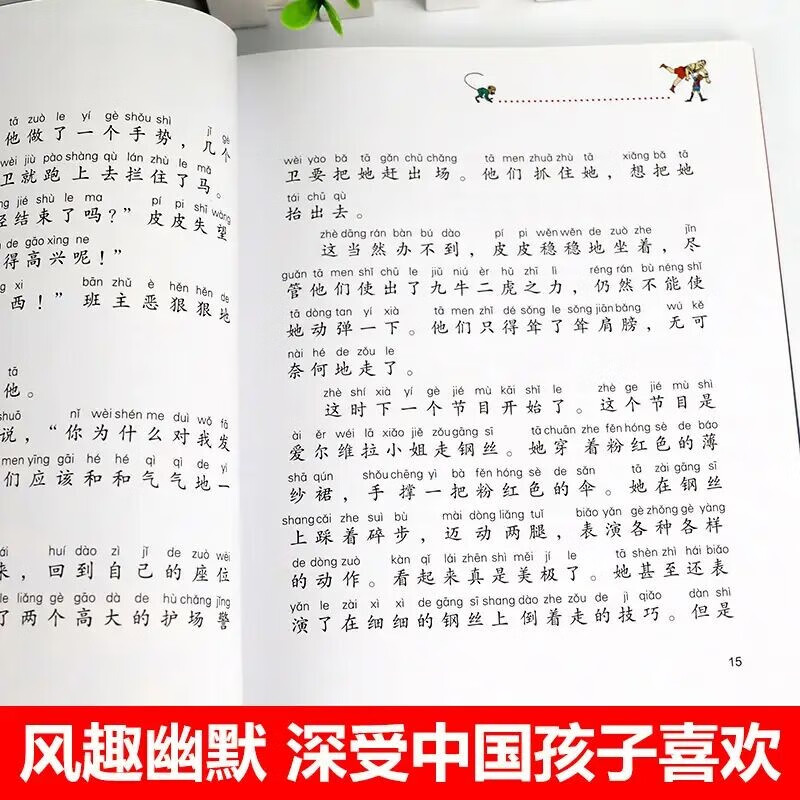 tā zuò le yí gè shǒu shì jǐ gè
他做了一个手势，几个
wèi jiù pào shàng qù lán zhù le mǎ
卫就跑上去拦住了马。
jié shù le ma pí pi shī wàng
结束了吗？”皮皮失望
de gāo xìng ne
得高兴呢！”
xi bān zhǔ è hěn hěn de
西！”班主恶狠狠地
tā
他。
shuō nǐ wèi shén me duì wǒ fā
说，“你为什么对我发
men yīng gāi hé hé qì qì de yí
们应该和和气气地一
huí dào zì jǐ de zuò wèi
来，回到自己的座位
le liǎng gè gāo dà de hù chǎng jǐng
了两个高大的护场警
wèi yào bǎ tā gǎn chū chǎng tā men zhuā zhù tā xiǎng bǎ tā
卫要把她赶出场。他们抓住她，想把她
tái chū qù
抬出去。
zhè dāng rán bàn bú dào pí pi wěn wěn de zuò zhe jǐn
这当然办不到，皮皮稳稳地坐着，尽
guǎn tā men shǐ chū le jiǔ niú èr hǔ zhī lì réng rán bù néng shǐ
管他们使出了九牛二虎之力，仍然不能使
tā dòng tan yí xià tā men zhǐ dé sǒng le sǒng jiān bǎng wú kě
她动弹一下。他们只得耸了耸肩膀，无可
nài hé de zǒu le
奈何地走了。
zhè shí xià yí gè jié mù kāi shǐ le zhè ge jié mù shì
这时下一个节目开始了。这个节目是
ài ěr wéi lā xiǎo jiě zǒu gāng sī tā chuān zhe fěn hóng sè de báo
爱尔维拉小姐走钢丝。她穿着粉红色的薄
shā qún shǒu chēng yì bǎ fěn hóng sè de sǎn tā zài gāng sī
纱裙，手撑一把粉红色的伞。她在钢丝
shang cǎi zhe suì bù mài dòng liǎng tuǐ biǎo yǎn gè zhǒng gè yàng
上踩着碎步，迈动两腿，表演各种各样
de dòng zuò kàn qǐ lái zhēn shì měi jí le tā shèn zhì hái biǎo
的动作。看起来真是美极了。她甚至还表
yǎn le zài xì xì de gāng sī shang dào zhe zǒu de jì qiǎo dàn shì
演了在细细的钢丝上倒着走的技巧。但是
15
风趣幽默 深受中国孩子喜欢